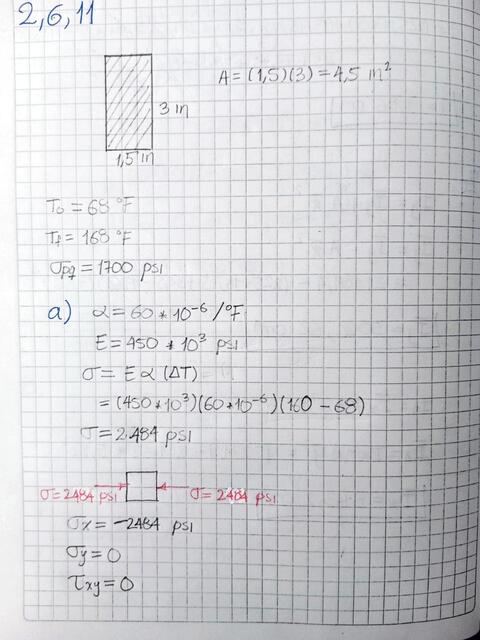 2,6,11
A = (1,5)(3) = 4,5 in²
3 in
1,5 in
To = 68 °F
Tf = 168 °F
σpg = 1700 psi
a) α = 60 * 10⁻⁶ /°F
E = 450 * 10³ psi
σ = E α (ΔT)
= (450*10³)(60*10⁻⁶)(160 - 68)
σ = 2.484 psi
σ = 2484 psi σ = 2484 psi
σx = -2484 psi
σy = 0
τxy = 0